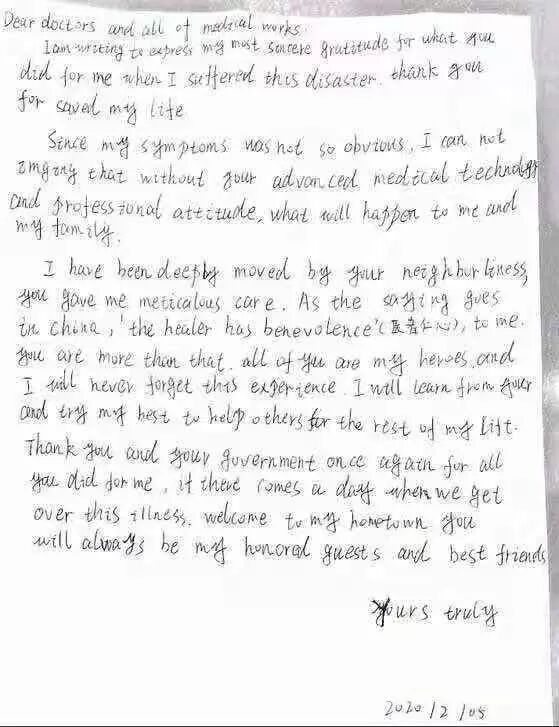 Dear doctors and all of medical works.
I am writing to express my most sincere gratitude for what you
did for me when I suffered this disaster. thank you
for saved my life
Since my symptoms was not so obvious, I can not
imging that without your advanced medical technology
and professional attitude, what will happen to me and
my family.
I have been deeply moved by your neighburliness,
you gave me meticalous care. As the saying goes
in china, 'the healer has benevolence'(医者仁心), to me.
you are more than that. all of you are my heroes, and
I will never forget this experience. I will learn from your
and try my best to help others for the rest of my lift.
Thank you and your government once again for all
you did for me, if there comes a day when we get
over this illness. welcome to my hometown you
will always be my honored guests and best friends
Yours truly
2020/2/05